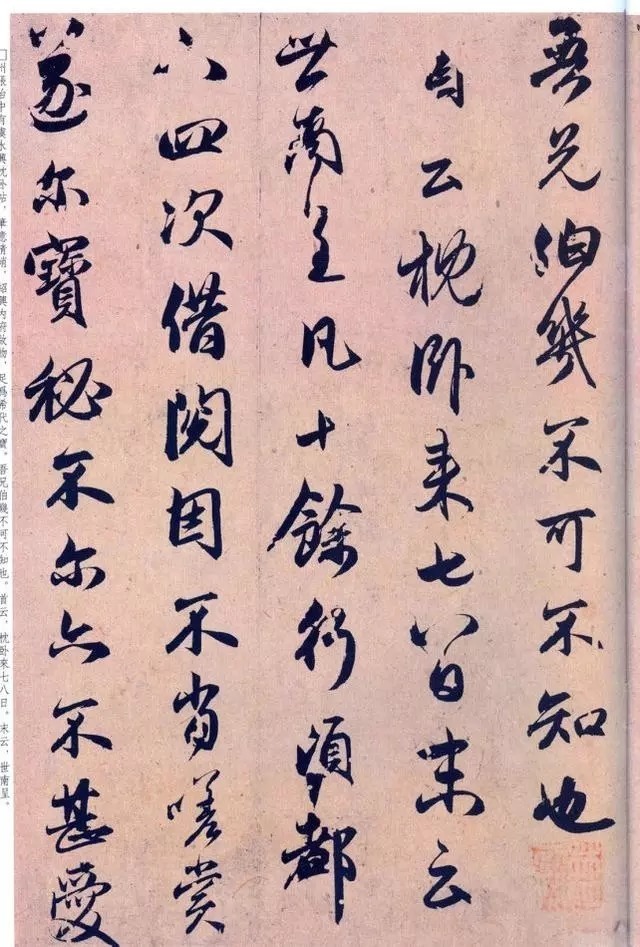 吾兄伯幾不可不知也
首云枕卧来七八日末云
世南呈凡十餘行須都
下四次借閱因不當嗟賞
遂尔寶秘不尔亦不甚愛
□州張治中有虞永興枕卧帖，筆意清峭，紹興内府故物，足爲希代之寶。吾兄伯幾不可不知也。首云，枕卧來七八日。末云，世南呈。